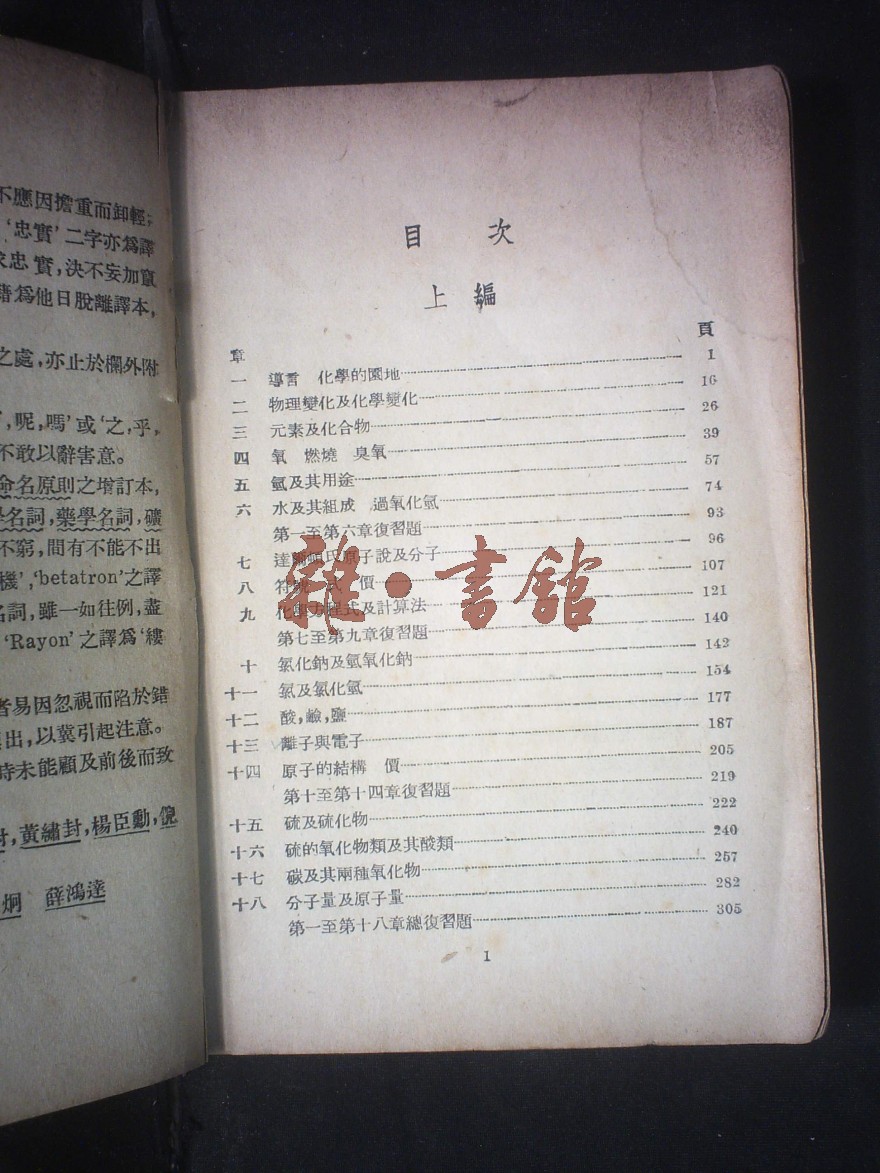 不應因擔重而卸輕;
‘忠實’二字亦爲譯
求忠實,決不妄加竄
藉爲他日脫離譯本,
之處,亦止於欄外附
,呢,嗎’或‘之,乎,
不敢以辭害意。
命名原則之增訂本,
學名詞,藥學名詞,礦
不窮,間有不能不出
機’,‘betatron’之譯
名詞,雖一如往例,盡
‘Rayon’之譯爲‘縷
者易因忽視而陷於錯
出,以冀引起注意。
時未能顧及前後而致
黃繡封,楊臣勳,倪
炯 薛鴻達
目 次
上 編
章 頁
一 導言 化學的園地 1
二 物理變化及化學變化 16
三 元素及化合物 26
四 氧 燃燒 臭氧 39
五 氫及其用途 57
六 水及其組成 過氧化氫 74
第一至第六章復習題 93
七 達爾頓氏原子說及分子 96
八 符號 式 價 107
九 化學方程式及計算法 121
第七至第九章復習題 140
十 氯化鈉及氫氧化鈉 142
十一 氯及氯化氫 154
十二 酸,鹼,鹽 177
十三 離子與電子 187
十四 原子的結構 價 205
第十至第十四章復習題 219
十五 硫及硫化物 222
十六 硫的氧化物類及其酸類 240
十七 碳及其兩種氧化物 257
十八 分子量及原子量 282
第一至第十八章總復習題 305
1
雜·書館